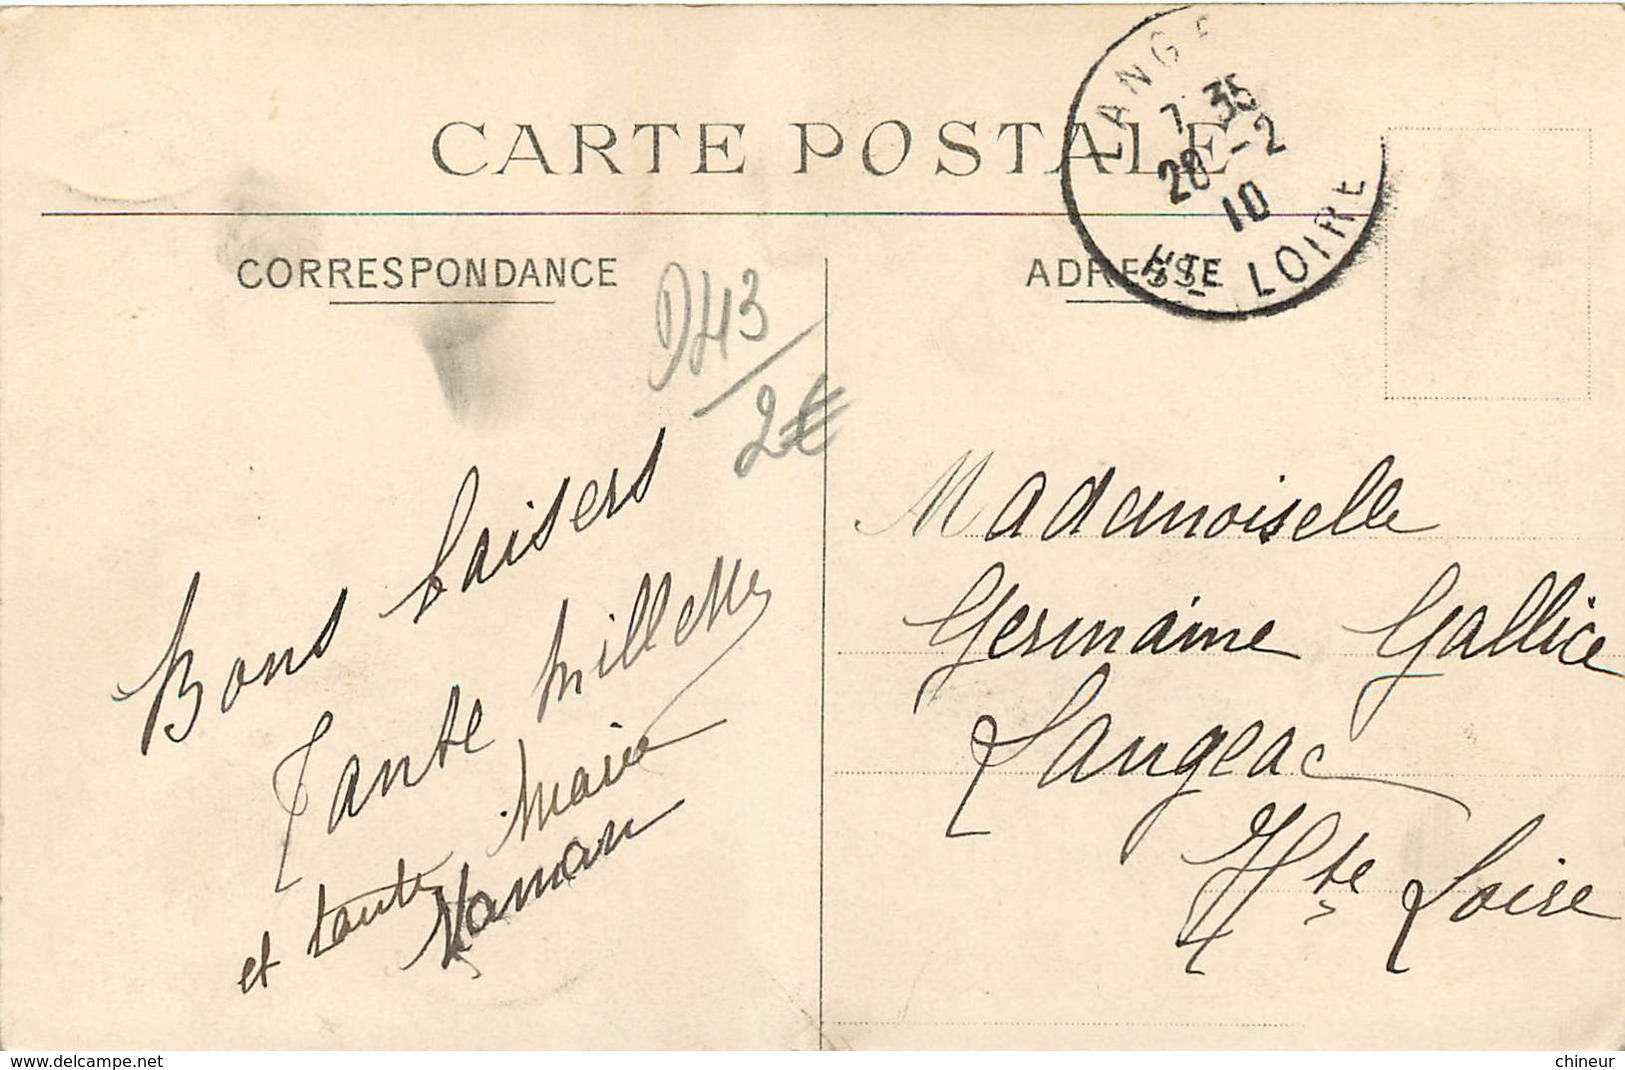 CARTE POSTALE
LANGE
7 35
28 - 2
10
HTE LOIRE
CORRESPONDANCE
ADRESSE
D43
2€
Bons baisers
Tante Millette
et tante Marie
Maman
Mademoiselle
Germaine Gallice
Langeac
Hte Loire
www.delcampe.net
chineur